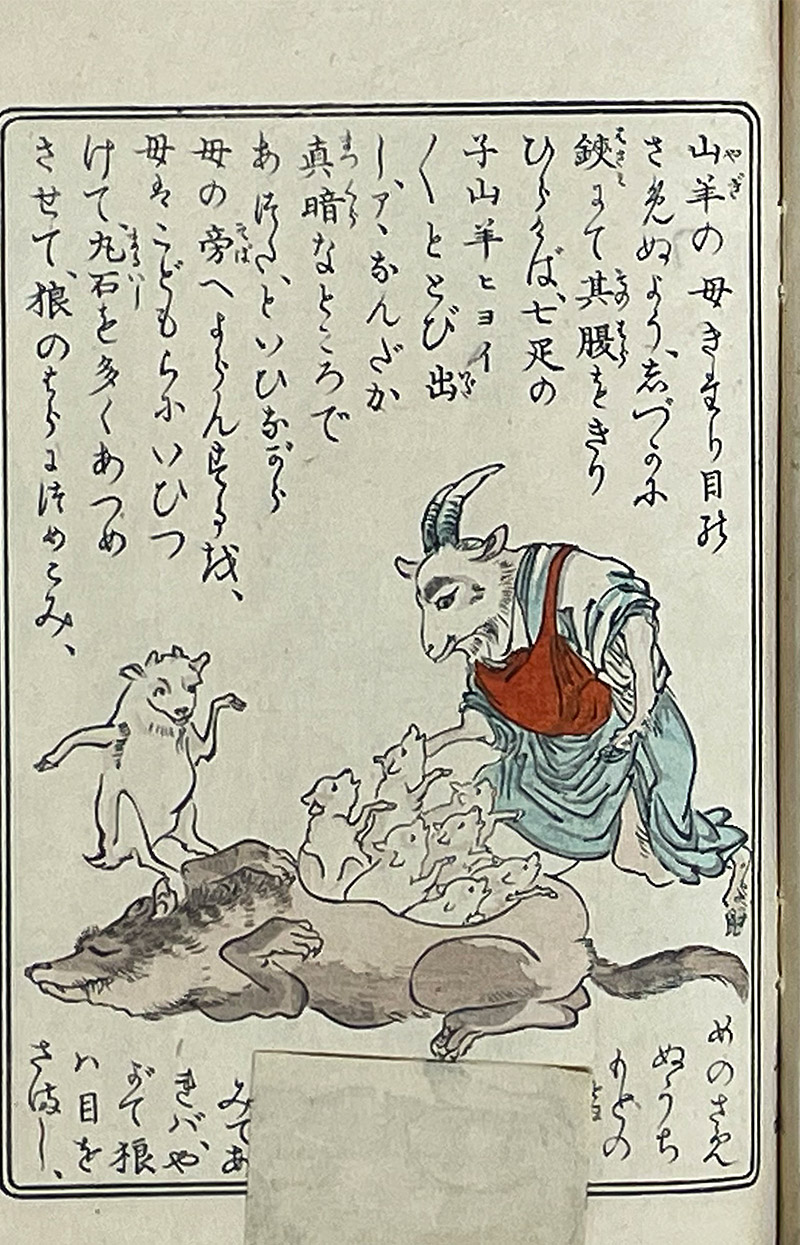 山羊の母きたり目の
さめぬよう、志づかに
鋏にて其腹をきり
ひらけば、七疋の
子山羊ヒョイ
〱ととび出
し、アヽなんだか
真暗なところで
あつた、といひながら
母の旁へよらんするを、
母はこどもらにいひつ
けて、丸石を多くあつめ
させて、狼のはらにつめこみ、
めのさめ
ぬうち
もとの
みてお
きバ、や
がて狼
ハ目を
さまし、